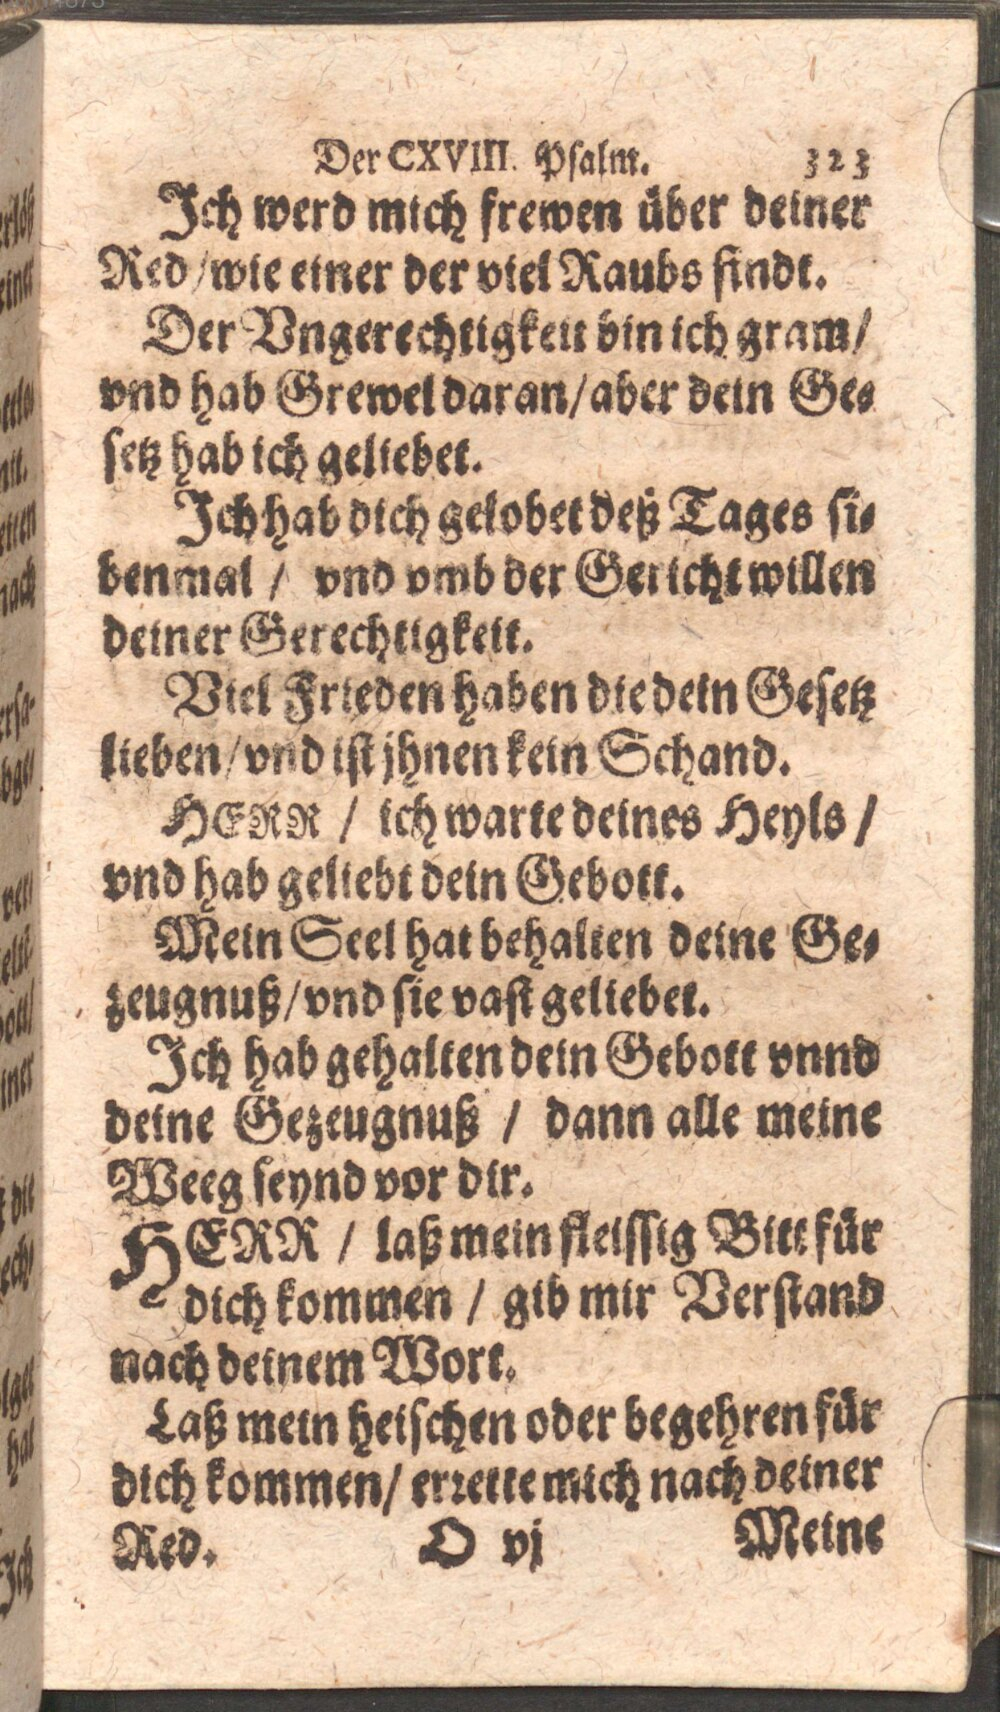 Der CXVIII. Psalm. 323
Ich werd mich frewen über deiner
Red / wie einer der viel Raubs findt.
Der Vngerechtigkeit bin ich gram /
vnd hab Grewel daran / aber dein Ge⸗
setz hab ich geliebet.
Ich hab dich gelobet deß Tages si⸗
benmal / vnd vmb der Gericht willen
deiner Gerechtigkeit.
Viel Frieden haben die dein Gesetz
lieben / vnd ist jhnen kein Schand.
HERR / ich warte deines Heyls /
vnd hab geliebt dein Gebott.
Mein Seel hat behalten deine Ge⸗
zeugnuß / vnd sie vast geliebet.
Ich hab gehalten dein Gebott vnnd
deine Gezeugnuß / dann alle meine
Weeg seynd vor dir.
HERR / laß mein fleissig Bitt für
dich kommen / gib mir Verstand
nach deinem Wort.
Laß mein heischen oder begehren für
dich kommen / errette mich nach deiner
Red. O vj Meine